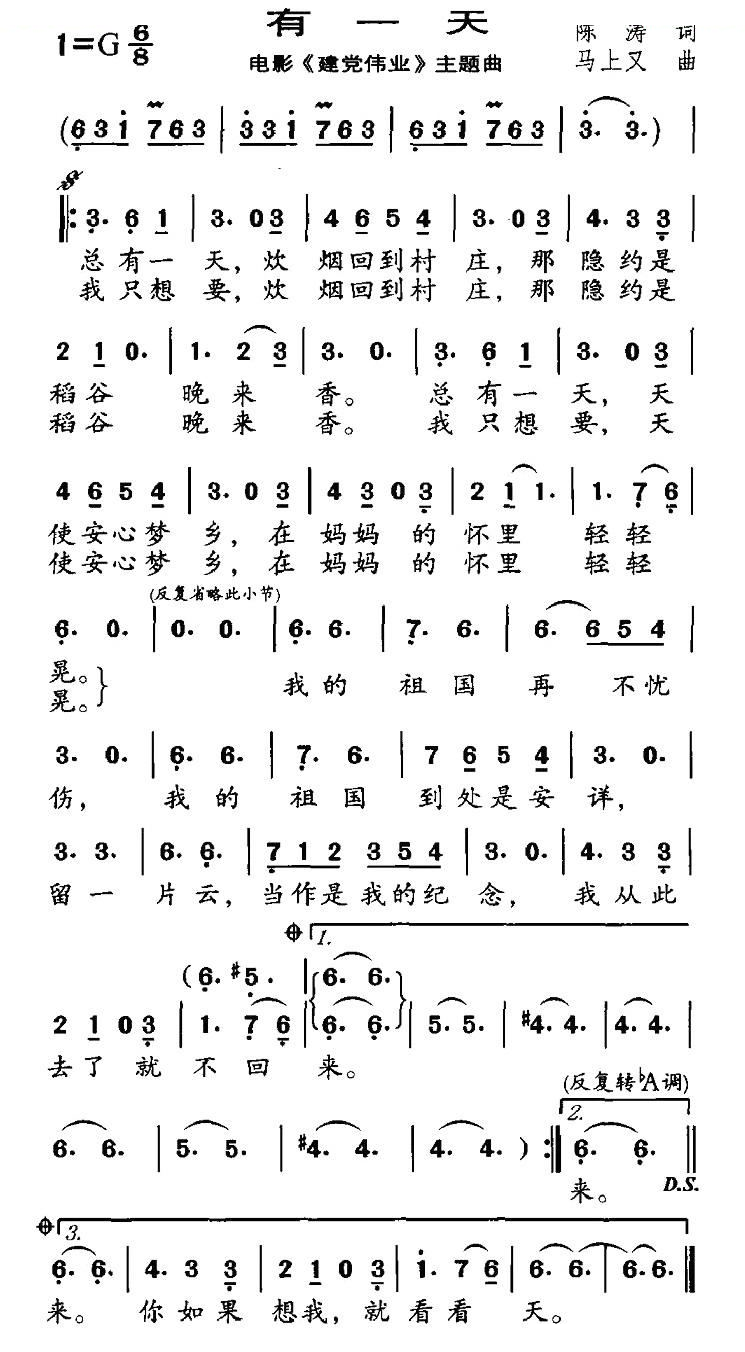 有一天
1=G 6/8
陈涛 词
电影《建党伟业》主题曲
马上又 曲
(6 3 1 7 6 3 | 3 3 1 7 6 3 | 6 3 1 7 6 3 | 3. 3. ) |
𝄋
‖: 3. 6 1 | 3. 0 3 | 4 6 5 4 | 3. 0 3 | 4. 3 3 |
总有一天，炊烟回到村庄，那隐约是
我只想要，炊烟回到村庄，那隐约是
2 1 0. | 1. 2 3 | 3. 0. | 3. 6 1 | 3. 0 3 |
稻谷 晚来香。总有一天，天
稻谷 晚来香。我只想要，天
4 6 5 4 | 3. 0 3 | 4 3 0 3 | 2 1 1. | 1. 7 6 |
使安心梦乡，在妈妈的怀里 轻轻
使安心梦乡，在妈妈的怀里 轻轻
(反复省略此小节)
6. 0. | 0. 0. | 6. 6. | 7. 6. | 6. 6 5 4 |
晃。 我的祖国再不忧
晃。
3. 0. | 6. 6. | 7. 6. | 7 6 5 4 | 3. 0. |
伤，我的祖国到处是安详，
3. 3. | 6. 6. | 7 1 2 3 5 4 | 3. 0. | 4. 3 3 |
留一片云，当作是我的纪念，我从此
𝄌 1.
(6. #5. | 6. 6.
2 1 0 3 | 1. 7 6 | 6. 6. | 5. 5. | #4. 4. | 4. 4. |
去了就不回来。
(反复转♭A调)
2.
6. 6. | 5. 5. | #4. 4. | 4. 4. ) :‖ 6. 6. ‖
来。 D.S.
𝄌 3.
6. 6. | 4. 3 3 | 2 1 0 3 | 1. 7 6 | 6. 6. | 6. 6. ‖
来。你如果想我，就看看天。